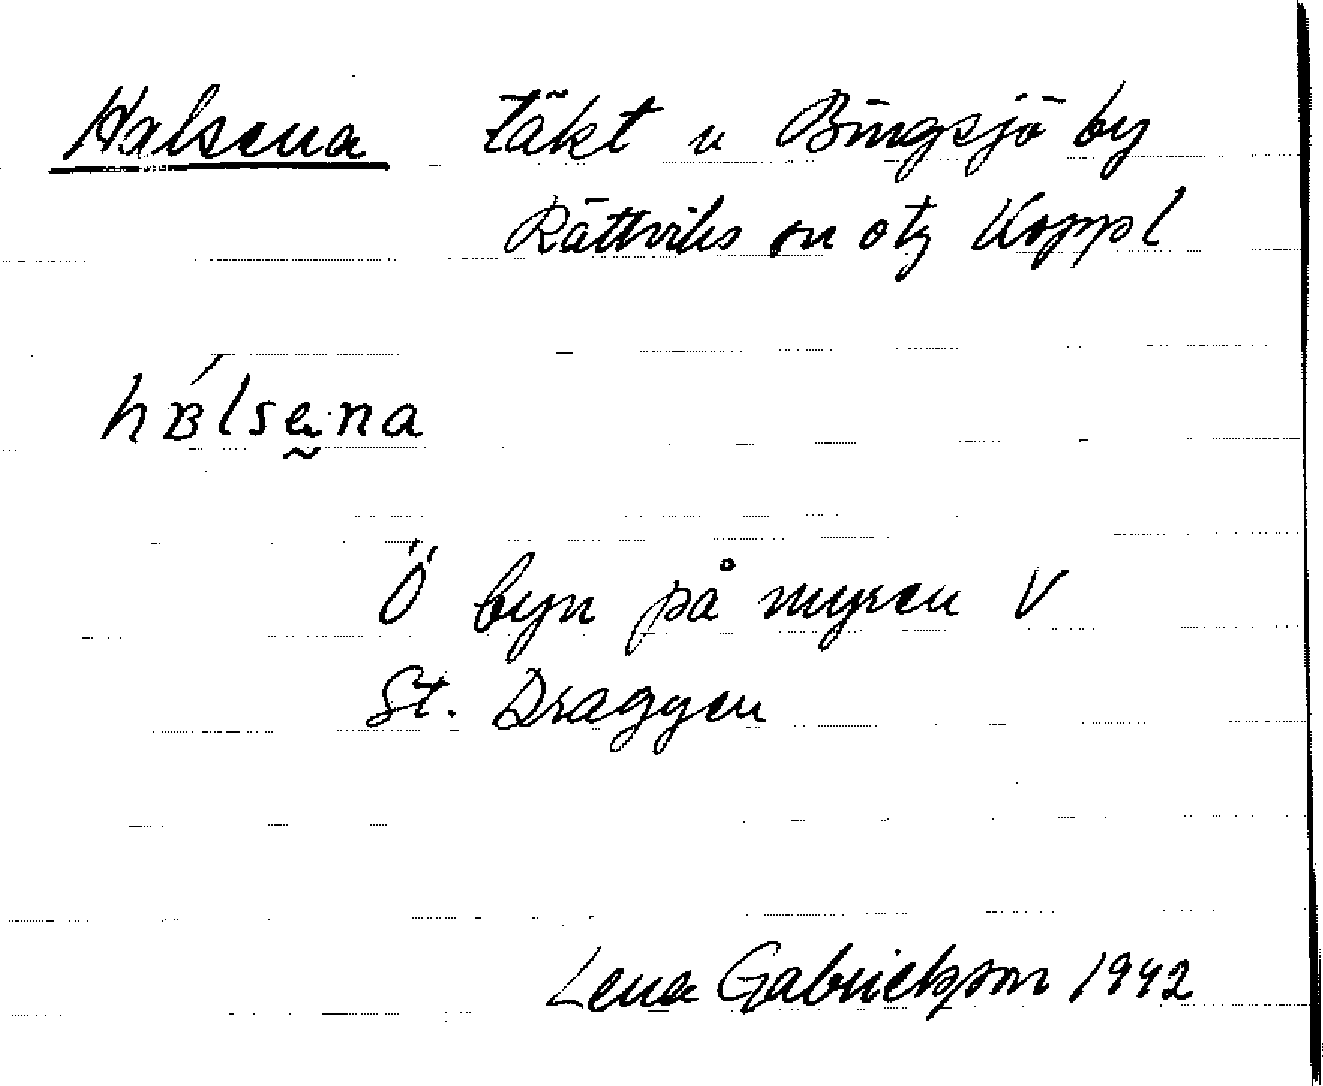 Halsena täkt u Bingsjö by
Rättviks sn o tg Koppl
hálsena
Ö byn på myren V
St. Draggen
Lena Gabrielsson 1942